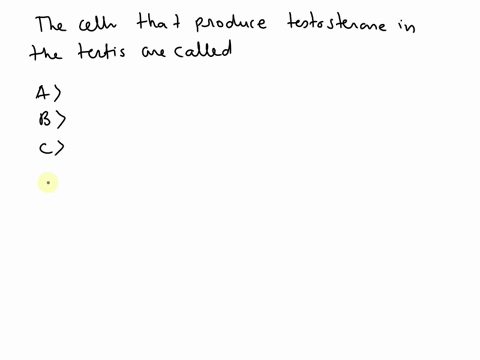 The cells that produce testosterone in
the testis are called
A>
B>
C>